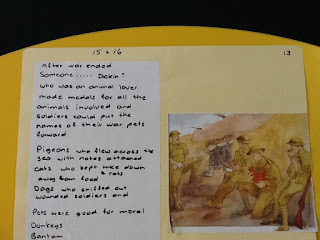 15 + 16
13
After war ended
Someone ..... Dickin?
who was an animal lover
made medals for all the
animals involved and
soldiers could put the
names of their war pets
forward
Pigeons who flew across the
sea with notes attached
Cats who kept mice down
& rats
away from food
Dogs who sniffed out
wounded soldiers and
Pets were good for moral
Donkeys
Bantam